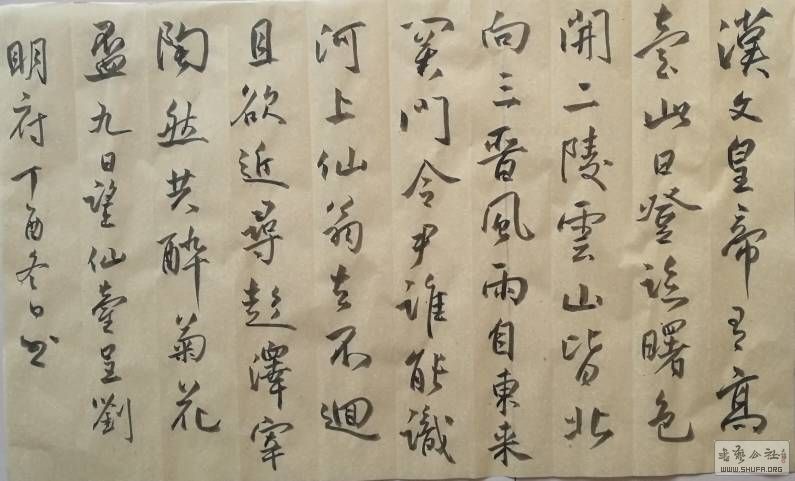 漢文皇帝有高
臺此日登臨曙色
開二陵雲山皆北
向三晉風雨自東来
關門令尹誰能識
河上仙翁去不迴
且欲近尋彭澤宰
陶然共醉菊花
盃九日望仙臺呈劉
明府丁酉冬日書
書藝公社
WWW.SHUFA.ORG